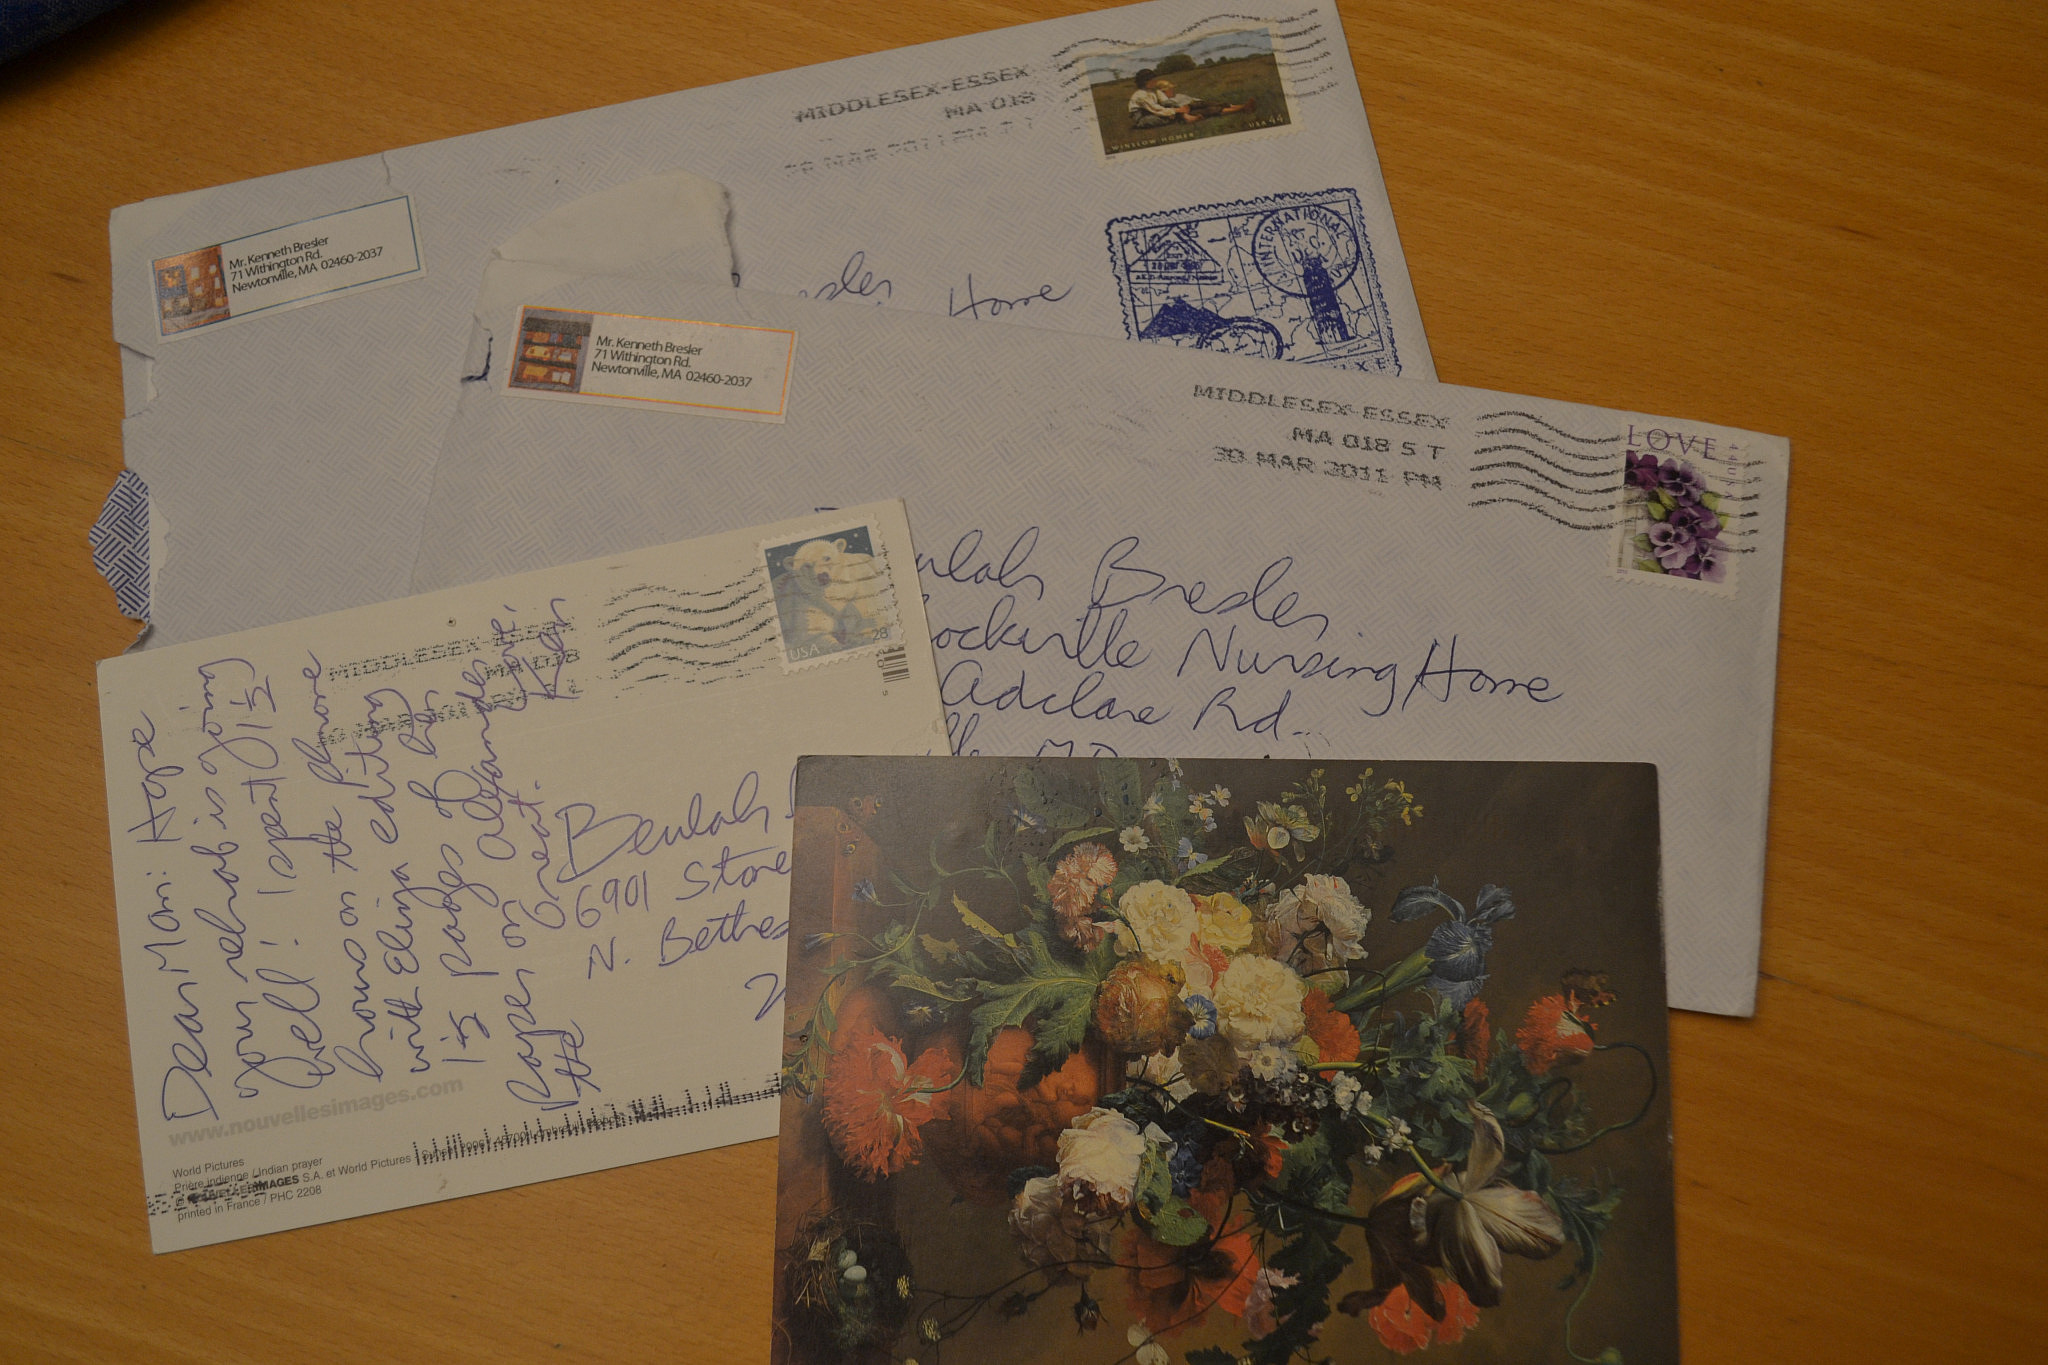 MIDDLESEX-ESSEX
MA 018
WINSLOW HOMER
USA 44
Mr. Kenneth Bresler
71 Withington Rd.
Newtonville, MA 02460-2037
Home
INTERNATIONAL
Mr. Kenneth Bresler
71 Withington Rd.
Newtonville, MA 02460-2037
MIDDLESEX-ESSEX
MA 018 5 T
30 MAR 2011 PM
LOVE
Bresler
Nursing Home
Adclare Rd.
MIDDLESEX
MA 018
USA
28
Dear Mom: Hope
your rehab is going
well! I spent 1 1/2
hours on the phone
with Eliza editing
1 1/2 pages of her
paper on Alexander
the Great.
Love,
Ken
Beulah
6901 Stone
N. Bethes
www.nouvellesimages.com
World Pictures
Prière indienne / Indian prayer
S.A. et World Pictures
printed in France / PHC 2208